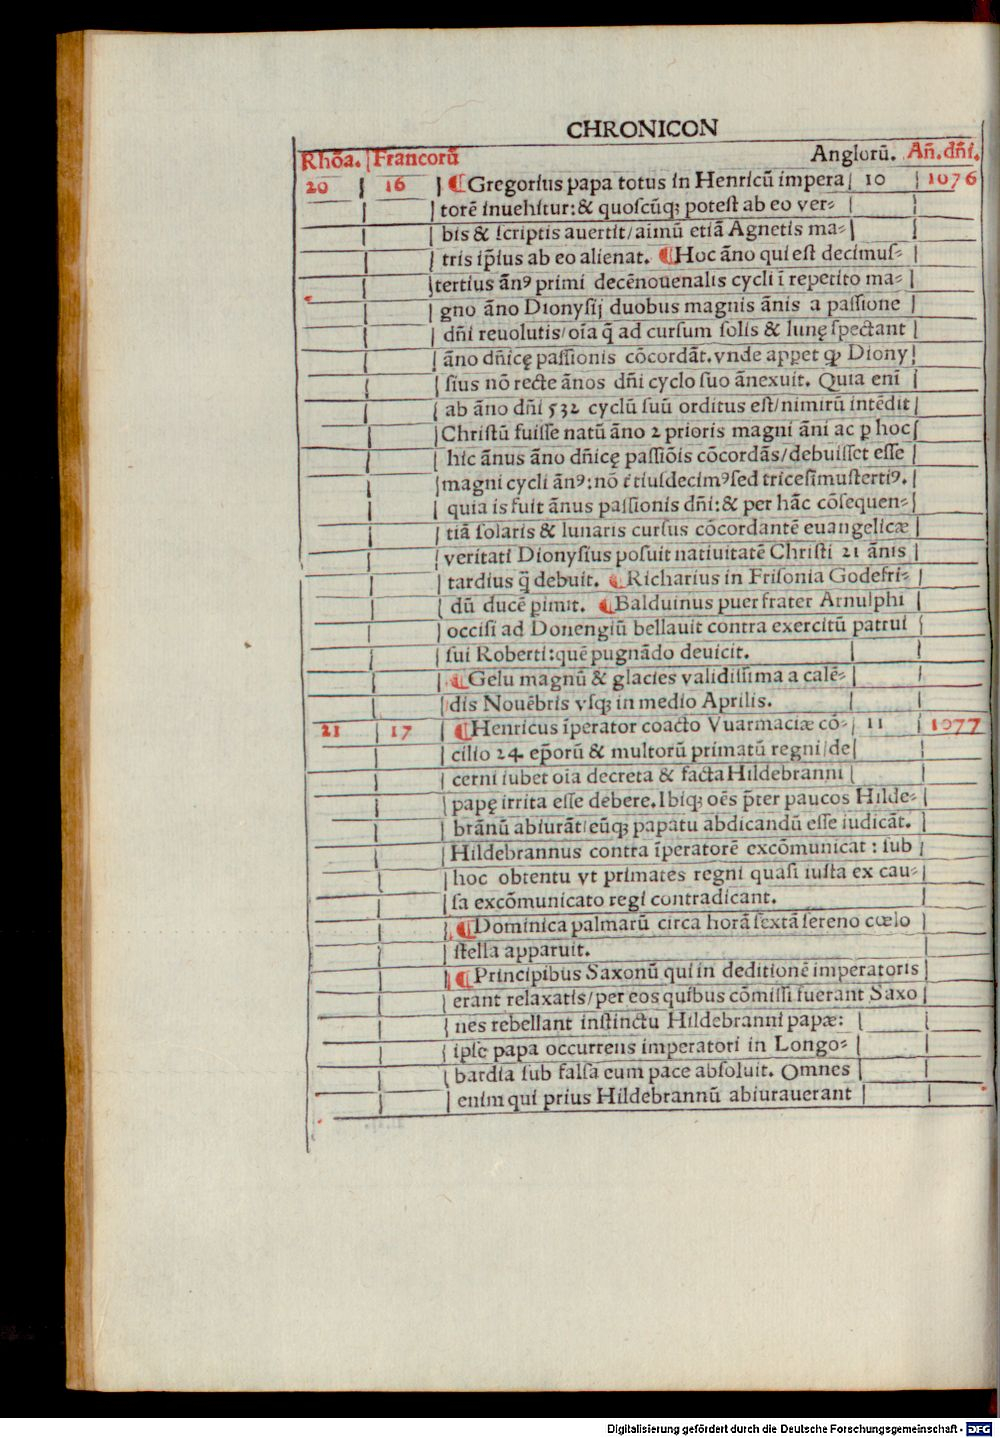 CHRONICON
Rhõa. Francorũ Anglorũ. Añ.dñi.
20 16 ¶Gregorius papa totus in Henricũ impera 10 1076
torē inuehitur:& quoscũq; potest ab eo ver⸗
bis & scriptis auertit/aimũ etiã Agnetis ma⸗
tris ip̃ius ab eo alienat. ¶Hoc ãno qui est decimus⸗
tertius ãnꝰ primi decēnouenalis cycli ĩ repetito ma⸗
gno ãno Dionysij duobus magnis ãnis a passione
dñi reuolutis/oĩa q̃ ad cursum solis & lunę spectant
ãno dñicę passionis cõcordãt.vnde appet ꝙ Diony
sius nõ recte ãnos dñi cyclo suo ãnexuit. Quia eni̅
ab ãno dñi 532 cyclũ suũ orditus est/nimirũ intēdit
Christũ fuisse natũ ãno 2 prioris magni ãni ac ꝑ hoc
hic ãnus ãno dñicę passiõis cõcordãs/debuisset esse
magni cycli ãnꝰ:nõ tꝛtiusdecimꝰsed tricesimustertiꝰ.
quia is fuit ãnus passionis dñi:& per hãc cõsequen⸗
tiã solaris & lunaris cursus cõcordantē euangelicæ
veritati Dionysius posuit natiuitatē Christi 21 ãnis
tardius q̃ debuit. ¶Richarius in Frisonia Godefri⸗
dũ ducē pimit. ¶Balduinus puer frater Arnulphi
occisi ad Donengiũ bellauit contra exercitũ patrui
sui Roberti:quē pugnãdo deuicit.
¶Gelu magnũ & glacies validissima a calē⸗
dis Nouēbris vsq; in medio Aprilis.
21 17 ¶Henricus ĩperator coacto Vuarmaciæ cõ⸗ 11 1077
cilio 24 ep̃orũ & multorũ primatũ regni/de
cerni iubet oia decreta & facta Hildebranni
papę irrita esse debere.Ibiq; oēs p̃ter paucos Hilde⸗
brãnũ abiurãt/eũq; papatu abdicandũ esse iudicãt.
Hildebrannus contra ĩperatorē excõmunicat : sub
hoc obtentu vt primates regni quasi iusta ex cau⸗
sa excõmunicato regi contradicant.
¶Dominica palmarũ circa horã sextã sereno cœlo
stella apparuit.
¶Principibus Saxonũ qui in deditionē imperatoris
erant relaxatis/per eos quibus cõmissi fuerant Saxo
nes rebellant instinctu Hildebranni papæ:
ipse papa occurrens imperatori in Longo⸗
bardia sub falsa eum pace absoluit. Omnes
enim qui prius Hildebrannũ abiurauerant
Digitalisierung gefördert durch die Deutsche Forschungsgemeinschaft - DFG